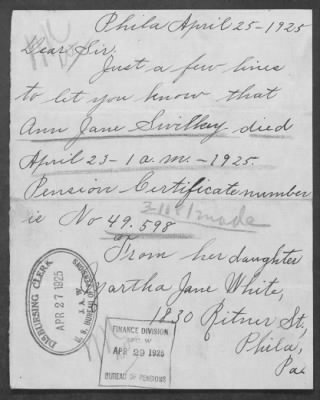 Phila April 25-1925
Dear Sir.
Just a few lines
to let you know that
Ann Jane Swilkey died
April 23-1 a.m.-1925.
Pension Certificate number
is No 49.598
From her daughter
Martha Jane White,
1830 Ritner St,
Phila,
Pa
DISBURSING CLERK
APR 27 1925
FINANCE DIVISION
APR 29 1925
BUREAU OF PENSIONS